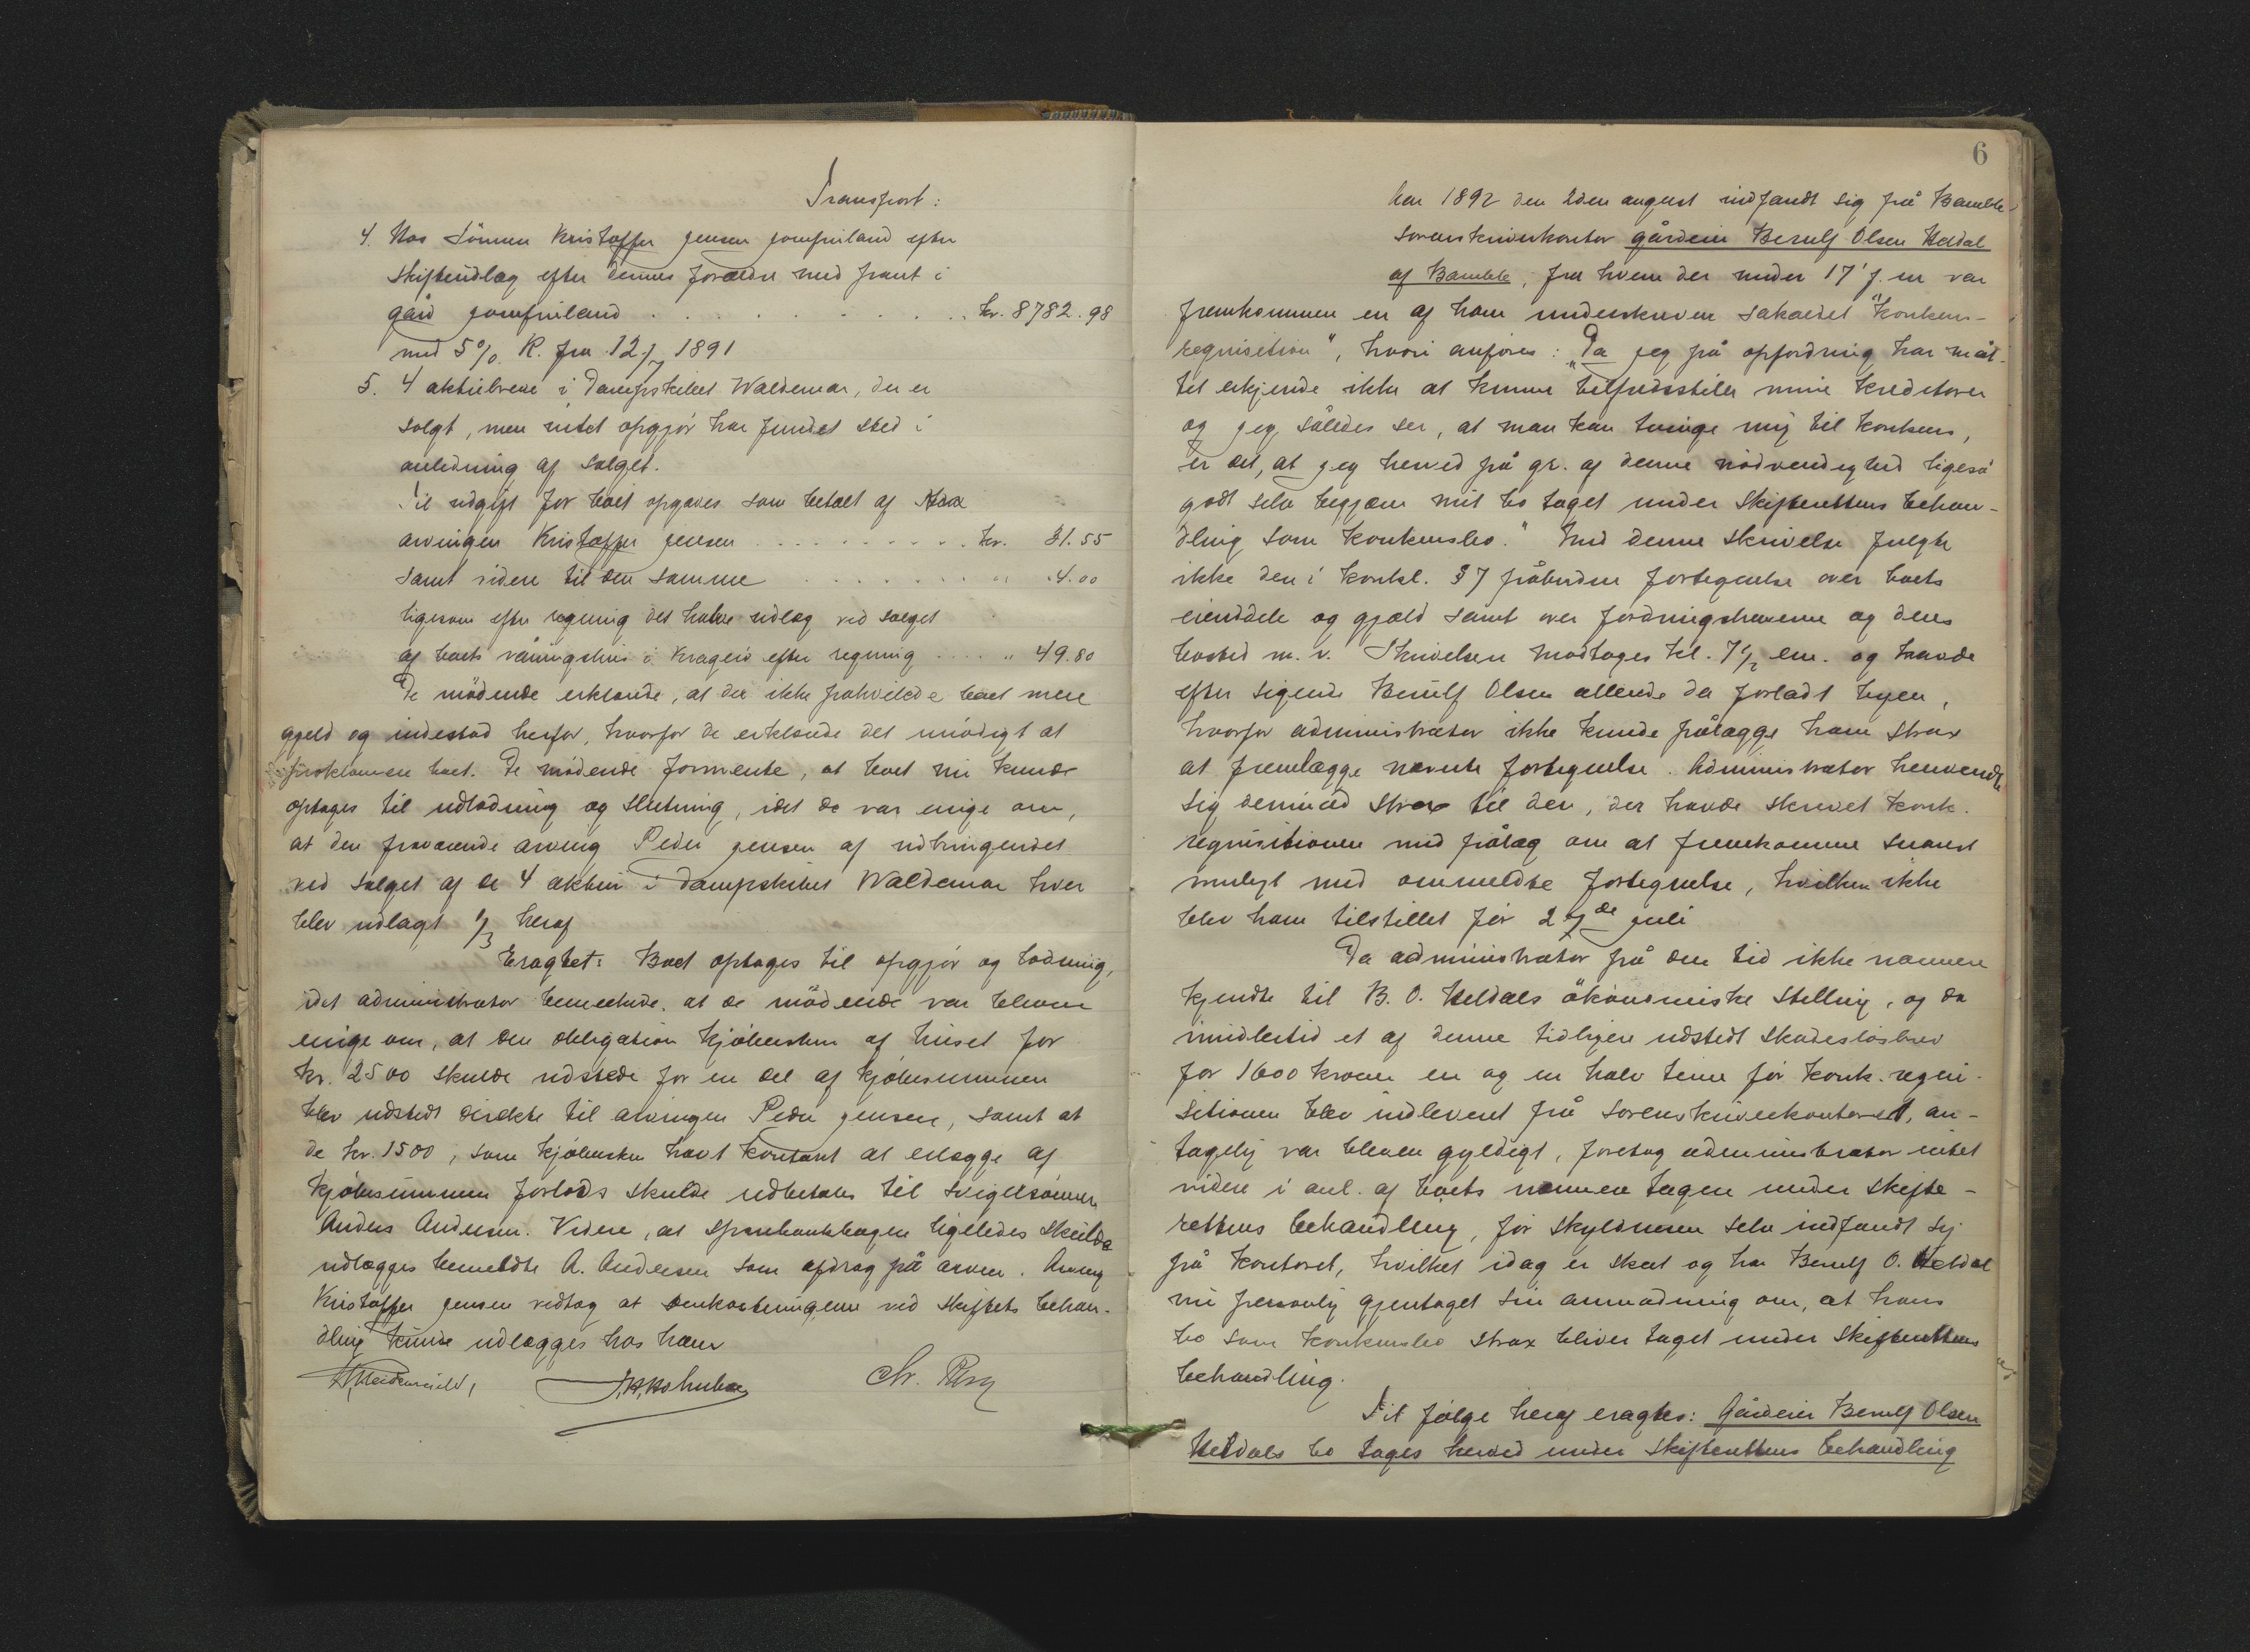 Transport:
4. Hos Sönnen Kristoffer Jensen Jomfruland efter
Skifteudlæg efter dennes forældre med prant i
gård Jomfruland . . . . . . . . . kr. 8782.98
med 5% R. fra 12/7 1891
5. 4 aktiebreve i Dampskibet Waldemar, der er
solgt, men intet opgjör har fundet sted i
anledning af salget.
Til udgift for boet opgaves som betalt af
arvingen Kristoffer Jensen . . . . . . . . . kr. 31.55
samt videre til den samme . . . . . . . " 4.00
ligesom efter regning det halve udlæg ved salget
af boets våningshus i Kragerö efter regning . . . . " 49.80
De mödende erklærede, at der ikke påhvilede boet mere
gjeld og indestod herfor, hvorfor de erklærede det unödigt at
proklamere boet. De mödende formente, at boet nu kunde
optages til udlodning og slutning, idet de var enige om,
at den fraværende arving Peder Jensen af udbringendet
ved salget af de 4 aktier i Dampskibet Waldemar hver
blev udlagt 1/3 heraf
Eragtet: Boet optages til opgjör og lodning,
idet administrator bemerkede, at de mödende var bleven
enige om, at den obligation kjöbersken af huset for
kr. 2500 skulde udstede for en del af kjöbesummen
blev udstedt direkte til arvingen Peder Jensen, samt at
de kr. 1500, som kjöbersken havt kontant at erlægge af
kjöbesummen forlods skulde udbetales til svigersönnen
Anders Andersen. Videre, at sparebankbogen ligeledes skulde
udlægges bemeldte A. Andersen som afdrag på arven. Arving
Kristoffer Jensen vedtog at omkostningerne ved skiftets behan-
dling kunde udlægges hos ham
Chr.
6
har 1892 den 2den august indfandt sig på Bamble
sorenskriverkontor gårdeier Berulf Olsen Heldal
af Bamble, fra hvem der under 17' f. m var
fremkommen en af ham underskreven sakaldet "konkurs-
requisition", hvori anföres: "Da jeg på opfordring har måt-
tet erkjende ikke at kunne tilfredsstille mine kreditorer
og jeg således ser, at man kan tvinge mig til konkurs,
er det, at jeg herved på gr. af denne nödvendighed ligeså
godt selv begjærer mit bo taget under skifterettens behan-
dling som konkursbo." Med denne skrivelse fulgte
ikke den i konkl. § 7 påbudne fortegnelse over boets
eiendele og gjæld samt over fordringshaverne og deres
bosted m. v. Skrivelsen modtoges kl. 7 1/2 em. og havde
efter sigende Berulf Olsen allerede da forladt byen,
hvorfor administrator ikke kunde pålægge ham strax
at fremlægge nævnte fortegnelse. Administrator henvendte
sig derimod strax til den, der havde skrevet konk.
requisitionen med pålæg om at fremkomme snarest
muligt med ommeldte fortegnelse, hvilken ikke
blev ham tilstillet för 27de juli
Da administrator på den tid ikke nærmere
kjendte til B. O. Heldals ökonomiske stilling, og da
imidlertid et af denne tidligere udstedt skadeslösbrev
for 1600 kroner en og en halv time för konk. requi-
sitionen blev indleveret på sorenskriverkontoret, an-
tagelig var bleven gyldigt, foretog administrator intet
videre i anl. af boets nærmere tagen under skifte-
rettens behandling, för skyldneren selv indfandt sig
på kontoret, hvilket idag er skeet og har Berulf O. Heldal
nu personlig gjentaget sin anmodning om, at hans
bo som konkursbo strax bliver taget under skifterettens
behandling.
Til fölge heraf eragtes: Gårdeier Berulf Olsen
Heldals bo tages herved under skifterettens behandling